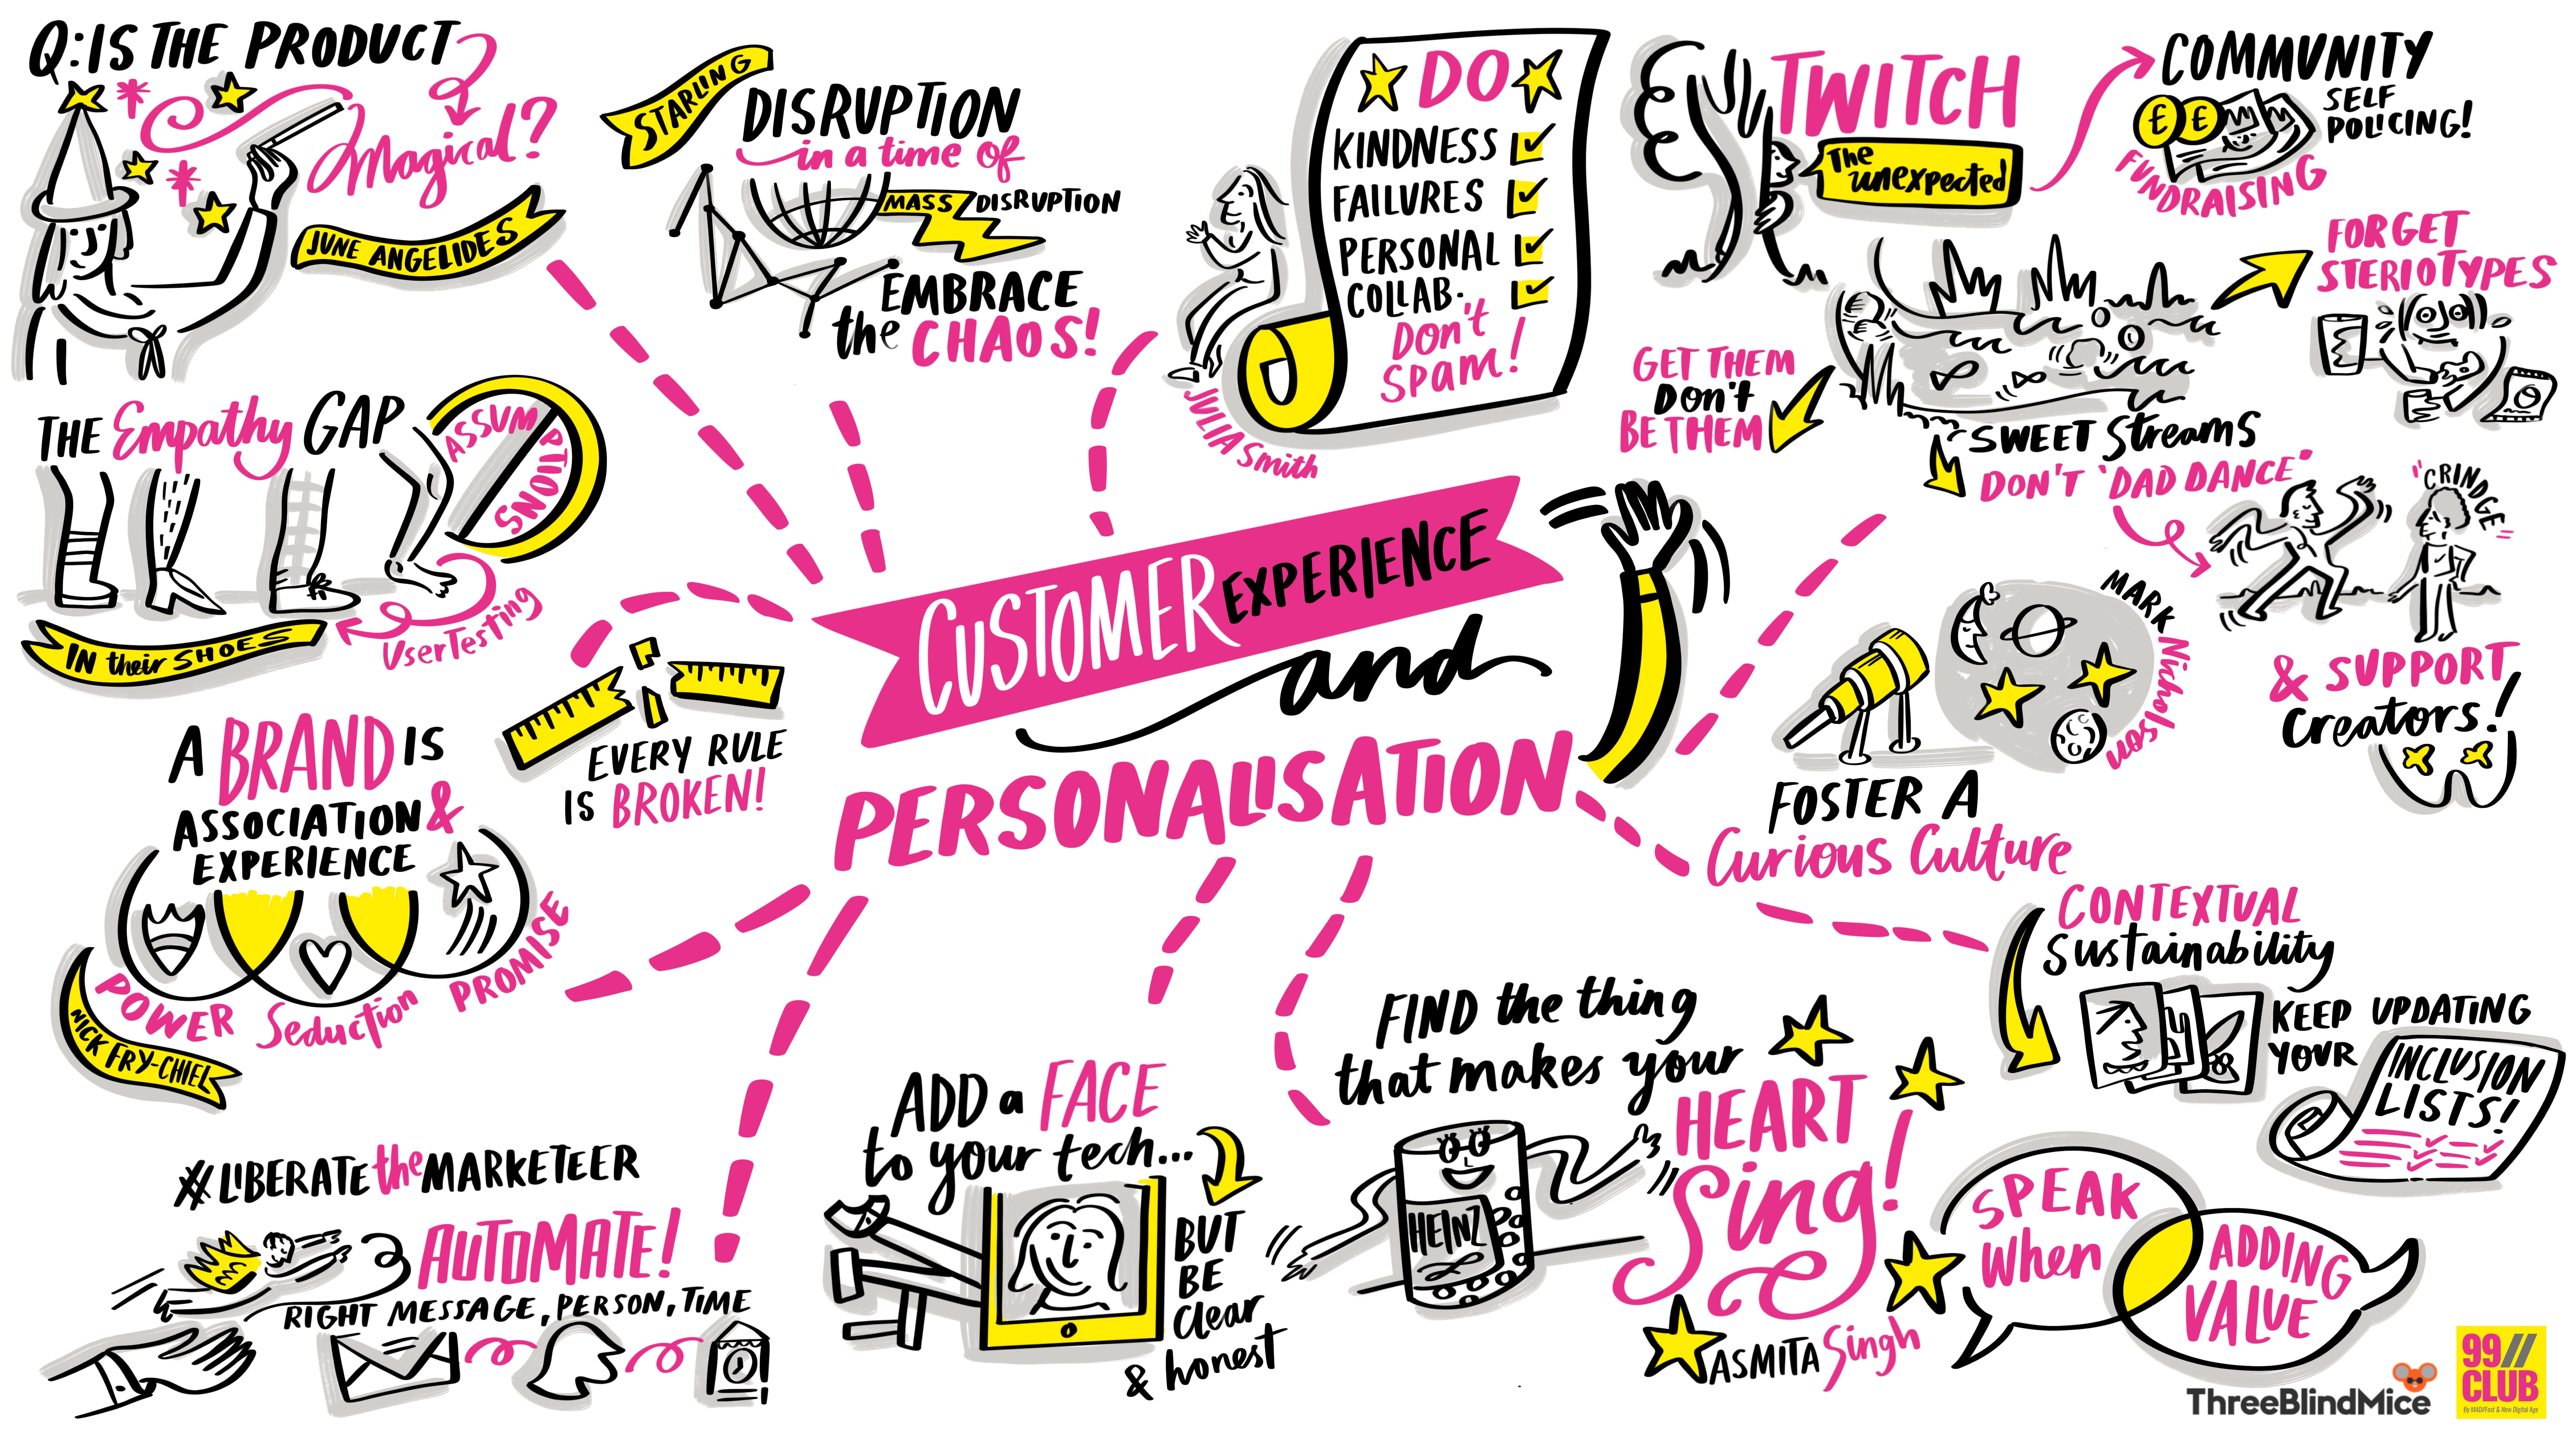 Q: IS THE PRODUCT
Magical?
JUNE ANGELIDES
THE Empathy GAP
ASSUMPTIONS
UserTesting
IN their SHOES
STARLING
DISRUPTION
in a time of
MASS DISRUPTION
EMBRACE
the CHAOS!
DO
KINDNESS
FAILURES
PERSONAL
COLLAB.
Don't
SPam!
JULIA Smith
TWITCH
The
unexpected
COMMUNITY
SELF
POLICING!
£ £
FUNDRAISING
FORGET
STERIOTYPES
GET THEM
Don't
BE THEM
SWEET Streams
DON'T 'DAD DANCE'
"CRINDGE"
& SUPPORT
Creators!
CUSTOMER EXPERIENCE
and
PERSONALISATION
EVERY RULE
IS BROKEN!
A BRAND IS
ASSOCIATION &
EXPERIENCE
POWER Seduction PROMISE
NICK FRY-CHIEL
MARK Nicholson
FOSTER A
Curious Culture
CONTEXTUAL
Sustainability
KEEP UPDATING
YOUR
INCLUSION
LISTS!
#LIBERATE the MARKETEER
AUTOMATE!
RIGHT MESSAGE, PERSON, TIME
ADD a FACE
to your tech...
BUT
BE
Clear
& honest
FIND the thing
that makes your
HEART
Sing!
HEINZ
ASMITA Singh
SPEAK
When
ADDING
VALUE
ThreeBlindMice
99//
CLUB
By MAD//Fest & New Digital Age